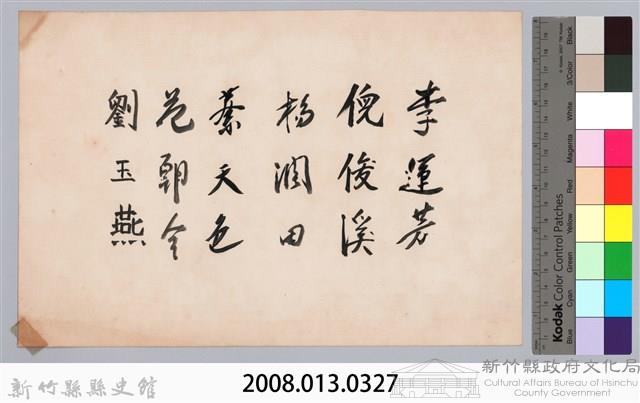 李運芳
倪俊溪
楊潤田
蔡天色
范朝全
劉玉燕
Black
3/Color
White
Magenta
Red
Yellow
Green
Cyan
Blue
Kodak Color Control Patches
新竹縣縣史館
2008.013.0327
新竹縣政府文化局
Cultural Affairs Bureau of Hsinchu
County Government